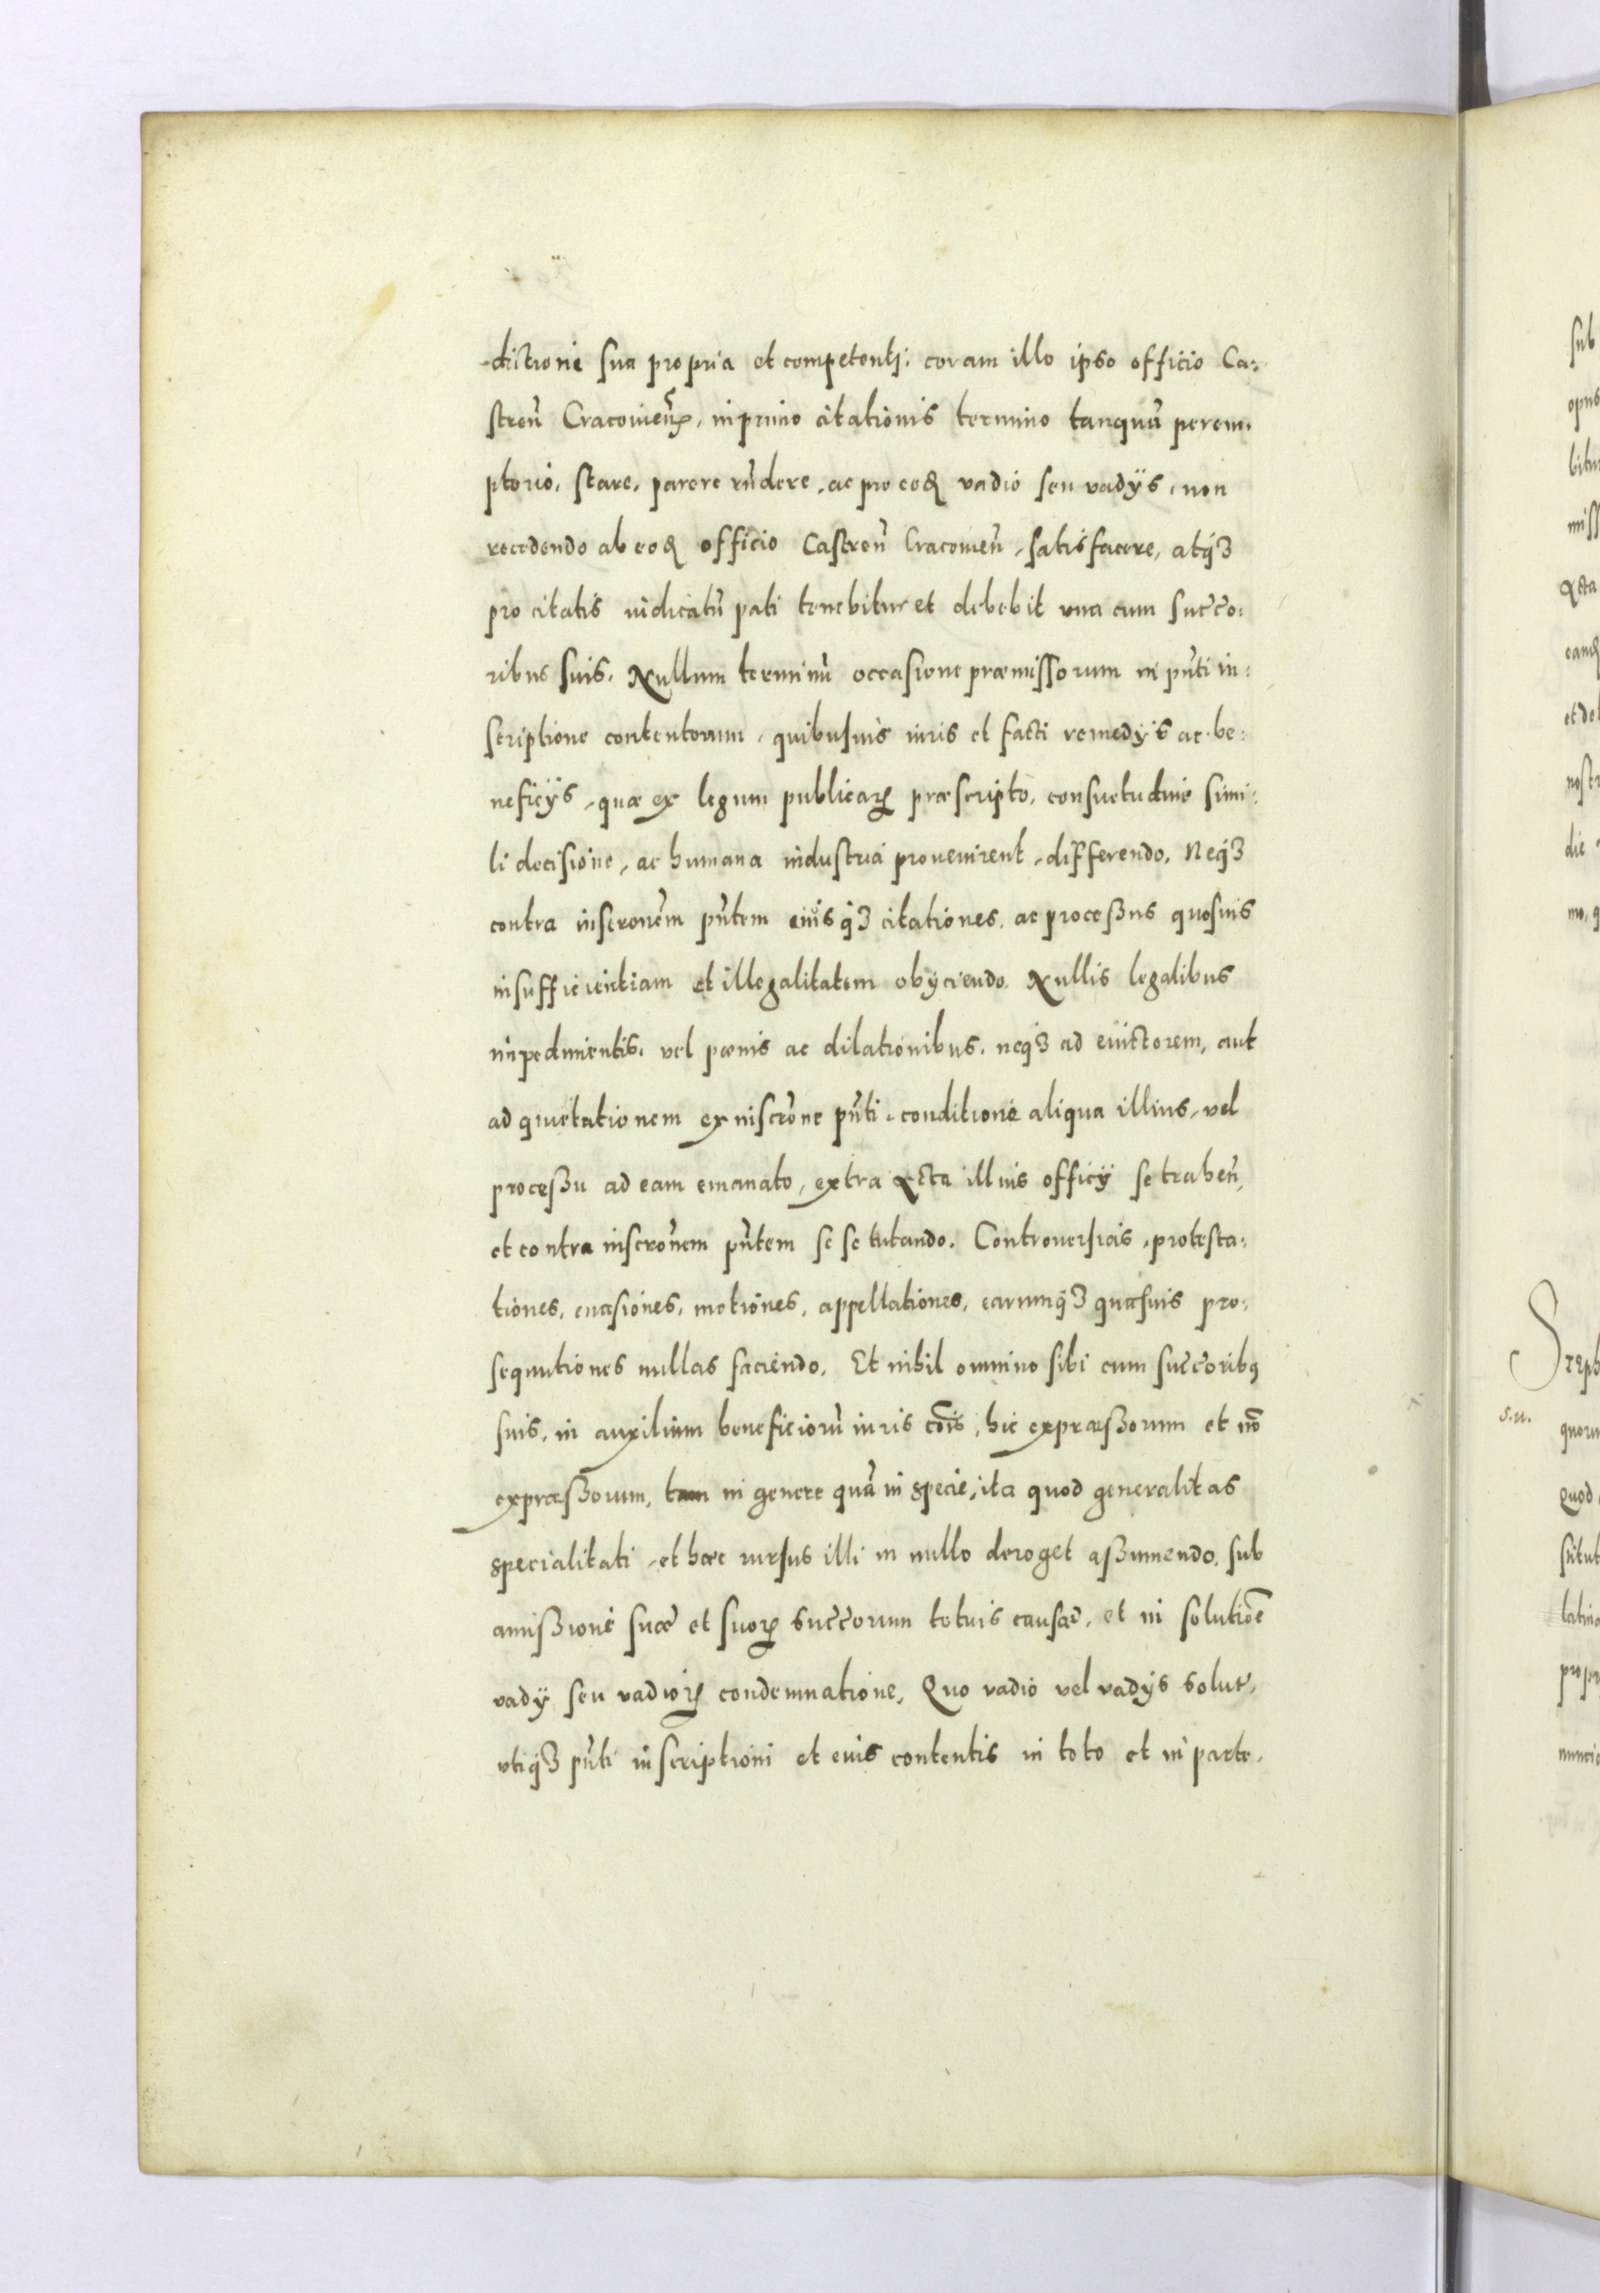 -dictione sua propria et competenti: coram illo ipso officio Ca:
streñ Cracovieñ, in primo citationis termino tanquã perem.
ptorio, stare, parere rñdere, ac pro eoḍ vadio seu vadÿs, non
recedendo ab eoḍ officio Castreñ Cracovieñ, satisfacere, atq́ꝫ
pro citatis iudicatũ pati tenebitur et debebit vna cum succ̃o:
ribus suis. Nullum terminũ occasione præmissorum in pñti in:
scriptione contentorum, quibusuis iuris et facti remedÿs ac be:
neficÿs, quæ ex legum publicaꝝ præscripto, consuetudine simi:
li decisione, ac humana industria prouenirent, differendo. Neq́ꝫ
contra inscronẽm pñtem eiusq́ꝫ citationes, ac proceßus quosuis
insufficientiam et illegalitatem obÿciendo. Nullis legalibus
impedimentis, vel pœnis ac dilationibus, neq́ꝫ ad euictorem, aut
ad quietationem ex inscrõne pñti, conditione aliqua illius, vel
proceßu ad eam emanato, extra Acta illius officÿ se traheñ,
et contra inscrõnem pñtem se se tutando. Controuersias, protesta:
tiones, euasiones, motiones, appellationes, earumq́ꝫ quasuis pro:
sequutiones nullas faciendo. Et nihil omnino sibi cum succ̃oribꝰ
suis, in auxilium beneficiorũ iuris cõis, hic expræßorum et nõ
expræßorum, tam in genere quã in specie, ita quod generalitas
specialitati, et hæc rursus illi in nullo deroget aßumendo, sub
amißione suæ et suoꝝ succ̃orum totius causæ, et in solutiõe
vadÿ seu vadioꝝ condemnatione. Quo vadio vel vadÿs solut̃,
vtiq́ꝫ pñti inscriptioni et eius contentis in toto et in parte,